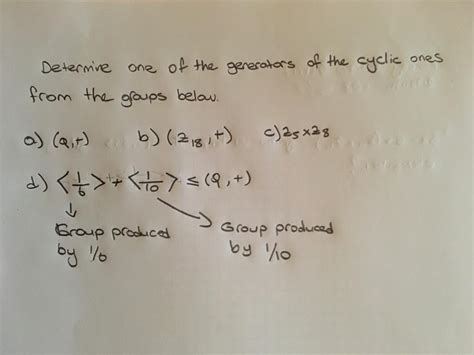 Determine one of the generators of the cyclic ones
from the groups below.
a) (Q,+) b) (Z₁₈,+) c) Z₅×Z₈
d) <1/6> + <1/10> ≤ (Q,+)
↓ ↘
Group produced by 1/6
Group produced by 1/10